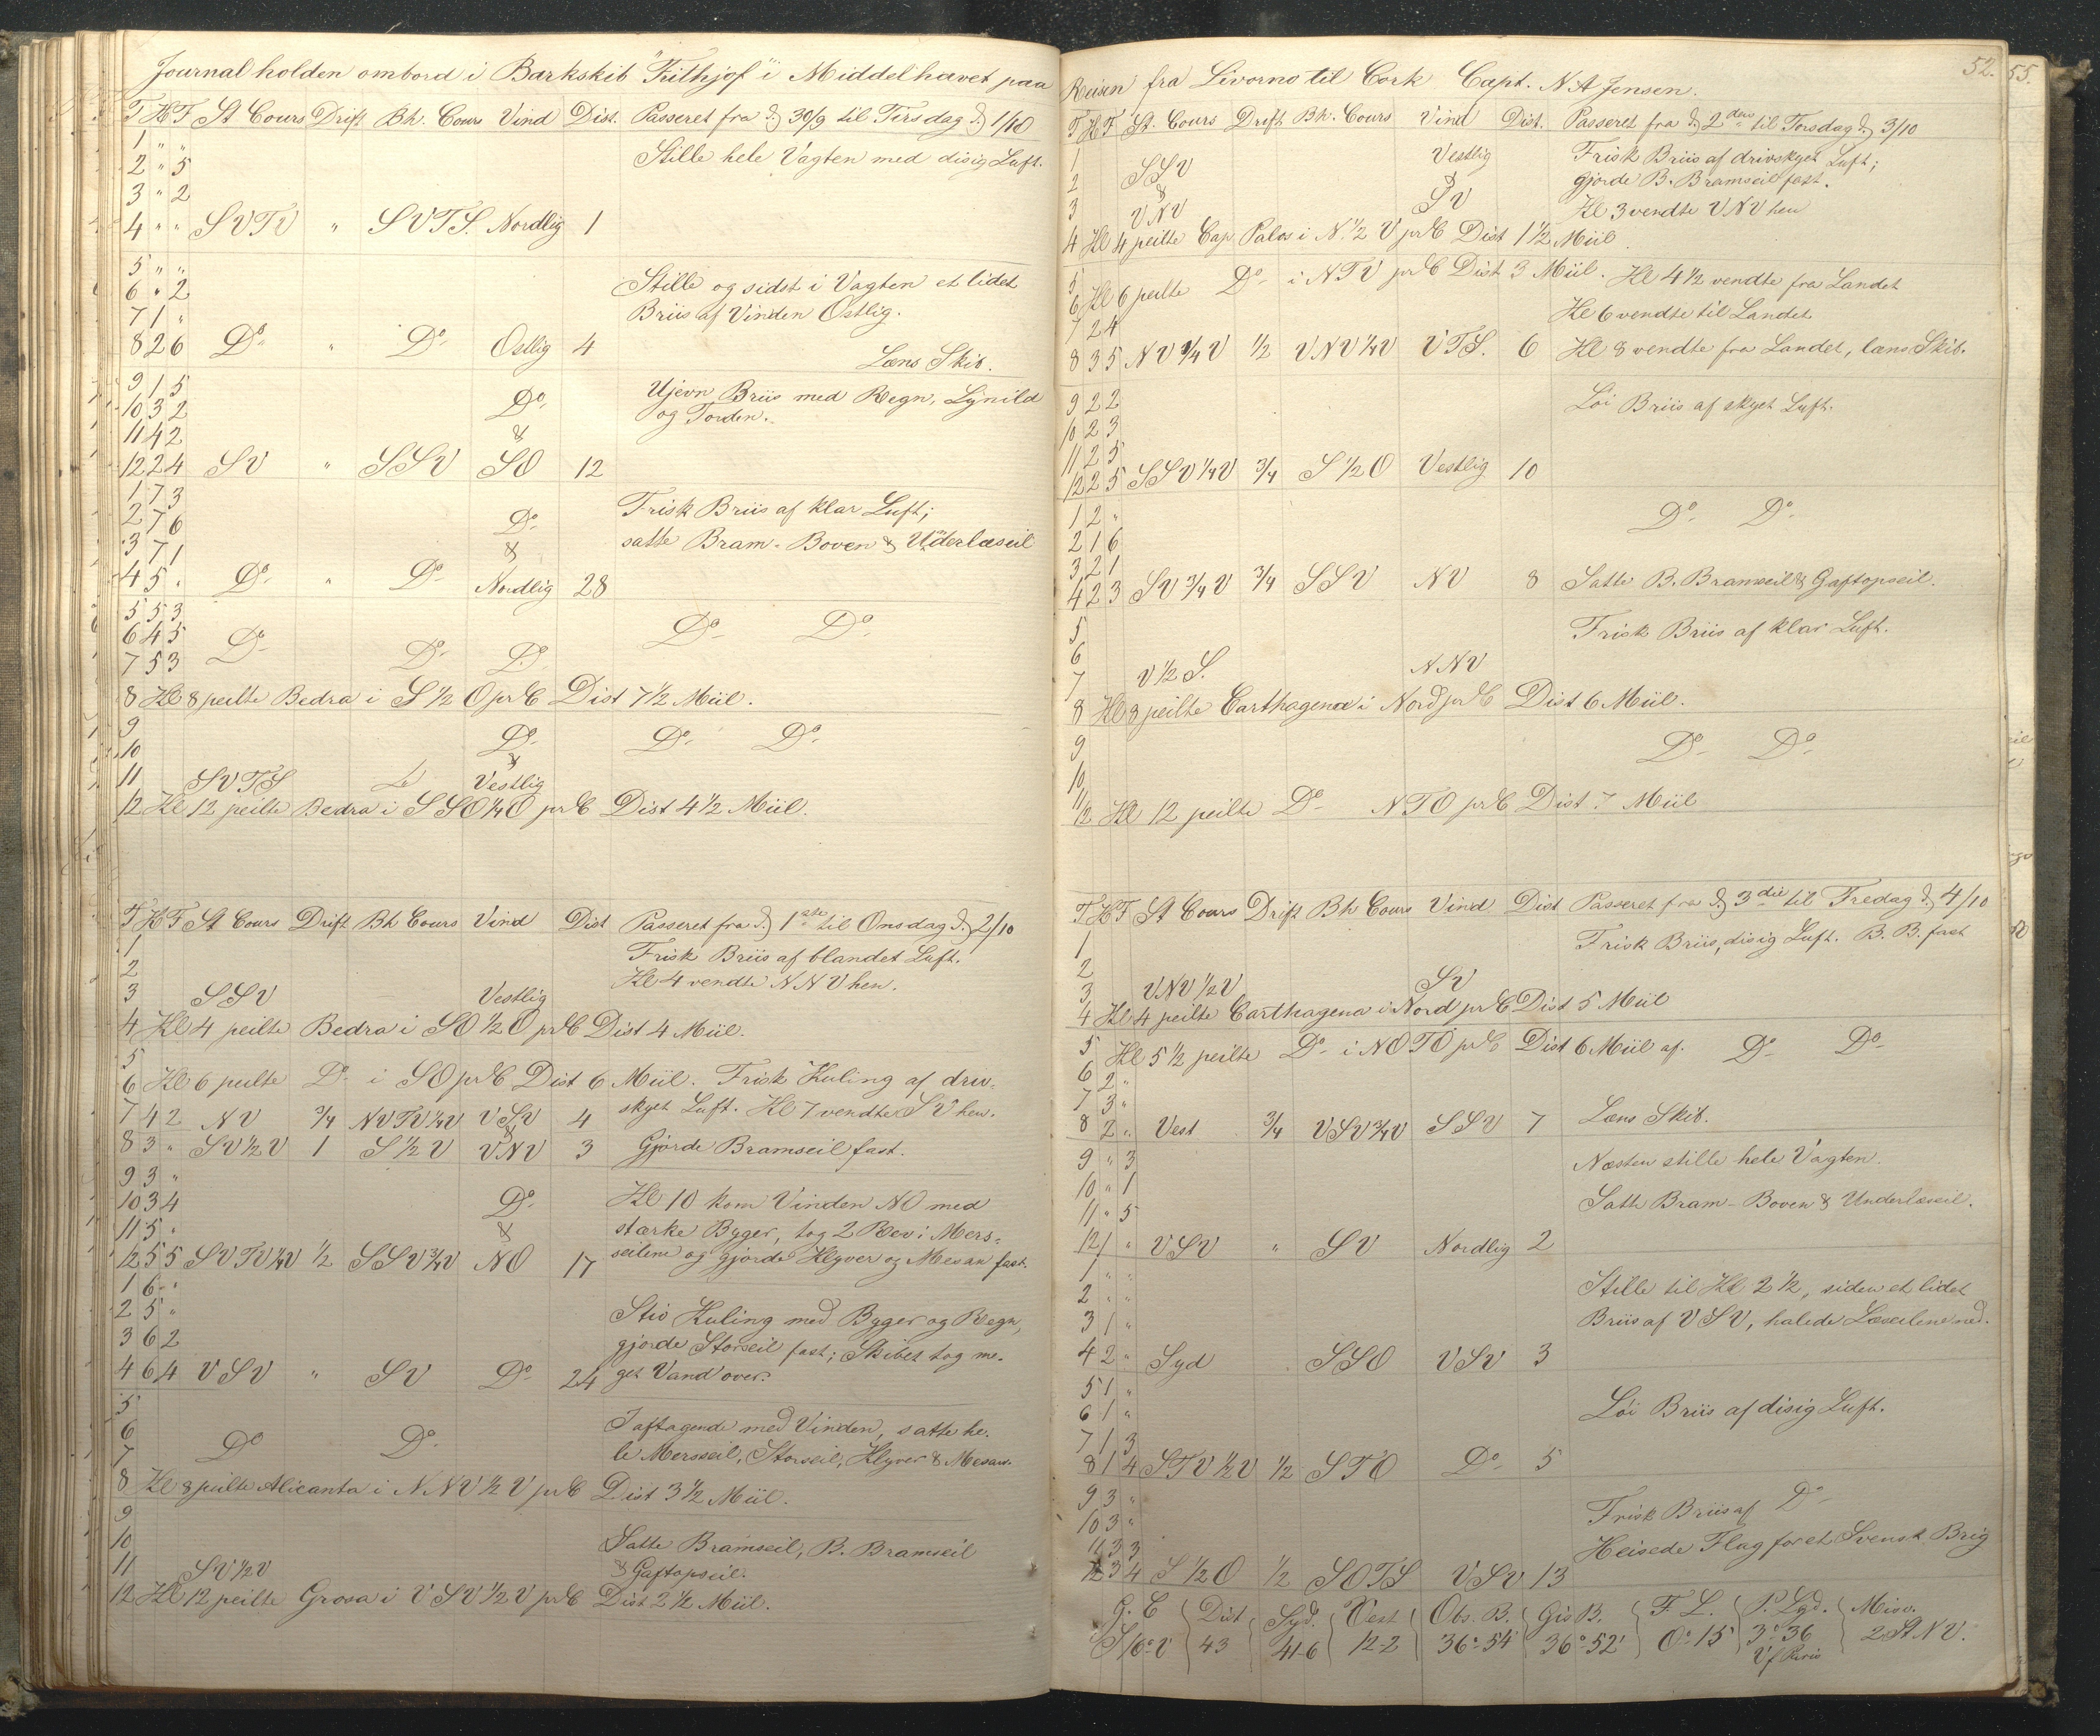 Journal holden ombord i Barkskib "Frithjof" i Middelhavet paa
T H F St Cours Drift Bh. Cours Vind Dist. Passeret fra d. 30/9 til Tirsdag d. 1/10
1 " "
2 " 5 Stille hele Vagten med disig Luft.
3 " 2
4 " " SVTV " SVTS. Nordlig 1
5 " "
6 " 2 Stille og sidst i Vagten et lidet
7 1 " Briis af Vinden Ostlig.
8 2 6 Do " Do Ostlig 4 Læns Skib.
9 1 5 Ujevn Briis med Regn, Lynild
10 3 2 Do og Torden.
11 4 2 &
12 2 4 SV " SSV SO 12
1 7 3 Frisk Briis af klar Luft;
2 7 6 Do
3 7 1 & satte Bram- Boven & Underlæseil
4 5 " Do " Do Nordlig 28
5 5 3
6 4 5 Do Do Do
7 5 3 Do Do
8 Kl 8 peilte Bedra i S 1/2 O pr C Dist 7 1/2 Miil.
9
10 Do Do Do
11 SVTS & Vestlig
12 Kl 12 peilte Bedra i SSO 1/4 O pr C Dist 4 1/2 Miil.
T H F St Cours Drift Bh Cours Vind Dist Passeret fra d. 1ste til Onsdag d. 2/10
1 Frisk Briis af blandet Luft.
2 Kl 4 vendte NNV hen.
3 SSV Vestlig
4 Kl 4 peilte Bedra i SO 1/2 O pr C Dist 4 Miil.
5
6 Kl 6 peilte Do i SO pr C Dist 6 Miil. Frisk Kuling af driv-
7 4 2 NV 3/4 NVTV 1/4 V VSV 4 skyet Luft. Kl 7 vendte SV hen.
8 3 " SV 1/2 V 1 S 1/2 V VNV 3 Gjorde Bramseil fast.
9 3 "
10 3 4 Do Kl 10 kom Vinden NO med
11 5 " & stærke Byger, tog 2 Rev i Mers-
12 5 5 SVTV 1/4 V 1/2 SSV 3/4 V NO 17 seilene og gjorde Klyver og Mesan fast.
1 6 "
2 5 " Stiv Kuling med Byger og Regn,
3 6 2 gjorde Storseil fast; Skibet tog me-
4 6 4 VSV " SV Do 24 get Vand over.
5
6 I aftagende med Vinden, satte he-
7 Do Do le Mersseil, Storseil, Klyver & Mesan.
8 Kl 8 peilte Alicanta i NNV 1/2 V pr C Dist 3 1/2 Miil.
9
10 Satte Bramseil, B. Bramseil
11 SV 1/2 V & Gaftopseil.
12 Kl 12 peilte Grosa i VSV 1/2 V pr C Dist 2 1/2 Miil.
52. 55.
Reisen fra Livorno til Cork Capt. N A Jensen.
T H F St. Cours Drift Bh. Cours Vind Dist. Passeret fra d. 2den til Torsdag d. 3/10
1 Vestlig Frisk Briis af drivskyet Luft;
2 SSV & gjorde B. Bramseil fast.
3 & VNV SV Kl 3 vendte VNV hen
4 Kl 4 peilte Cap Palos i N. 1/2 V pr C Dist 1 1/2 Miil.
5
6 Kl 6 peilte Do i NTV pr C Dist 3 Miil. Kl 4 1/2 vendte fra Landet
7 2 4 Kl 6 vendte til Landet
8 3 5 NV 3/4 V 1/2 VNV 1/4 V VTS. 6 Kl 8 vendte fra Landet, læns Skib.
9 2 2 Löi Briis af skyet Luft.
10 2 3
11 2 5
12 2 5 SSV 1/4 V 3/4 S 1/2 O Vestlig 10
1 2 " Do Do
2 1 6
3 2 1
4 2 3 SV 3/4 V 3/4 SSV NV 8 Satte B. Bramseil & Gaftopseil.
5 Frisk Briis af klar Luft.
6
7 V 1/2 S. NNV
8 Kl 8 peilte Carthagena i Nord pr C Dist 6 Miil.
9 Do Do
10
11
12 Kl 12 peilte Do NTO pr C Dist 7 Miil
T H F St Cours Drift Bh Cours Vind Dist Passeret fra d. 3die til Fredag d. 4/10
1 Frisk Briis, disig Luft. B. B. fast
2
3 VNV 1/2 V SV
4 Kl 4 peilte Carthagena i Nord pr C Dist 5 Miil
5 Kl 5 1/2 peilte Do i NOTO pr C Dist 6 Miil af. Do Do
6 2 "
7 3 "
8 2 " Vest 3/4 VSV 3/4 V SSV 7 Læns Skib.
9 " 3 Næsten stille hele Vagten.
10 " 1
11 " 5 Satte Bram- Boven & Underlæseil.
12 1 " VSV " SV Nordlig 2
1 " "
2 " " Stille til Kl 2 1/2, siden et lidet
3 1 " Briis af VSV, halede Læseilene ned.
4 2 " Syd SSO VSV 3
5 1 "
6 1 " Löi Briis af disig Luft.
7 1 3
8 1 4 STV 1/2 V 1/2 STO Do 5
9 3 " Frisk Briis af Do
10 3 "
11 3 3 Heisede Flag for et Svensk Brig
12 3 4 S 1/2 O 1/2 SOTS VSV 13
G. C Dist Syd. Vest Obs. B. Gis B. F L. P. Lgd. Misv.
S 16° V 43 41-6 12-2 36°-54' 36°-52' 0°-15 3°-36 2 St NV.
V f Paris